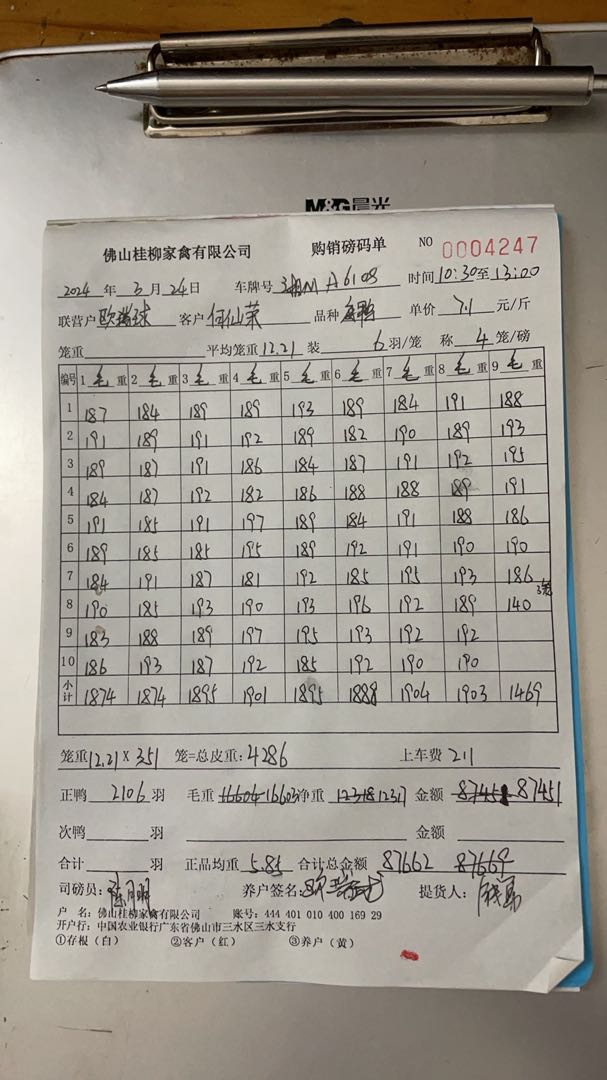 M&G晨光
佛山桂柳家禽有限公司 购销磅码单 NO 0004247
2024 年 3 月 24 日 车牌号 湘M A6108 时间 10:30至13:00
联营户 欧瑞球 客户 何仙荣 品种 单价 7.1 元/斤
笼重 平均笼重 12.21 装 6 羽/笼 称 4 笼/磅
编号 1 毛 重 2 毛 重 3 毛 重 4 毛 重 5 毛 重 6 毛 重 7 毛 重 8 毛 重 9 毛 重
1 187 184 189 189 193 189 184 191 188
2 191 189 191 192 189 182 190 189 193
3 189 187 191 186 184 187 191 192 195
4 184 187 192 182 186 188 188 189 191
5 191 185 191 197 189 184 191 188 186
6 189 185 185 195 189 192 191 190 190
7 184 191 187 181 192 185 195 193 186
8 190 185 193 190 193 196 192 189 140 3笼
9 183 188 189 197 195 193 192 192
10 186 193 187 192 185 192 190 190
小计 1874 1874 1895 1901 1895 1888 1904 1903 1469
笼重 12.21 X 351 笼=总皮重: 4286 上车费 211
正鸭 2106 羽 毛重 16604 16603 净重 12318 12317 金额 87451
次鸭 羽 金额
合计 羽 正品均重 5.85 合计总金额 87662 87669
司磅员: 养户签名: 提货人:
户 名: 佛山桂柳家禽有限公司 账号: 444 401 010 400 169 29
开户行: 中国农业银行广东省佛山市三水区三水支行
①存根（白） ②客户（红） ③养户（黄）